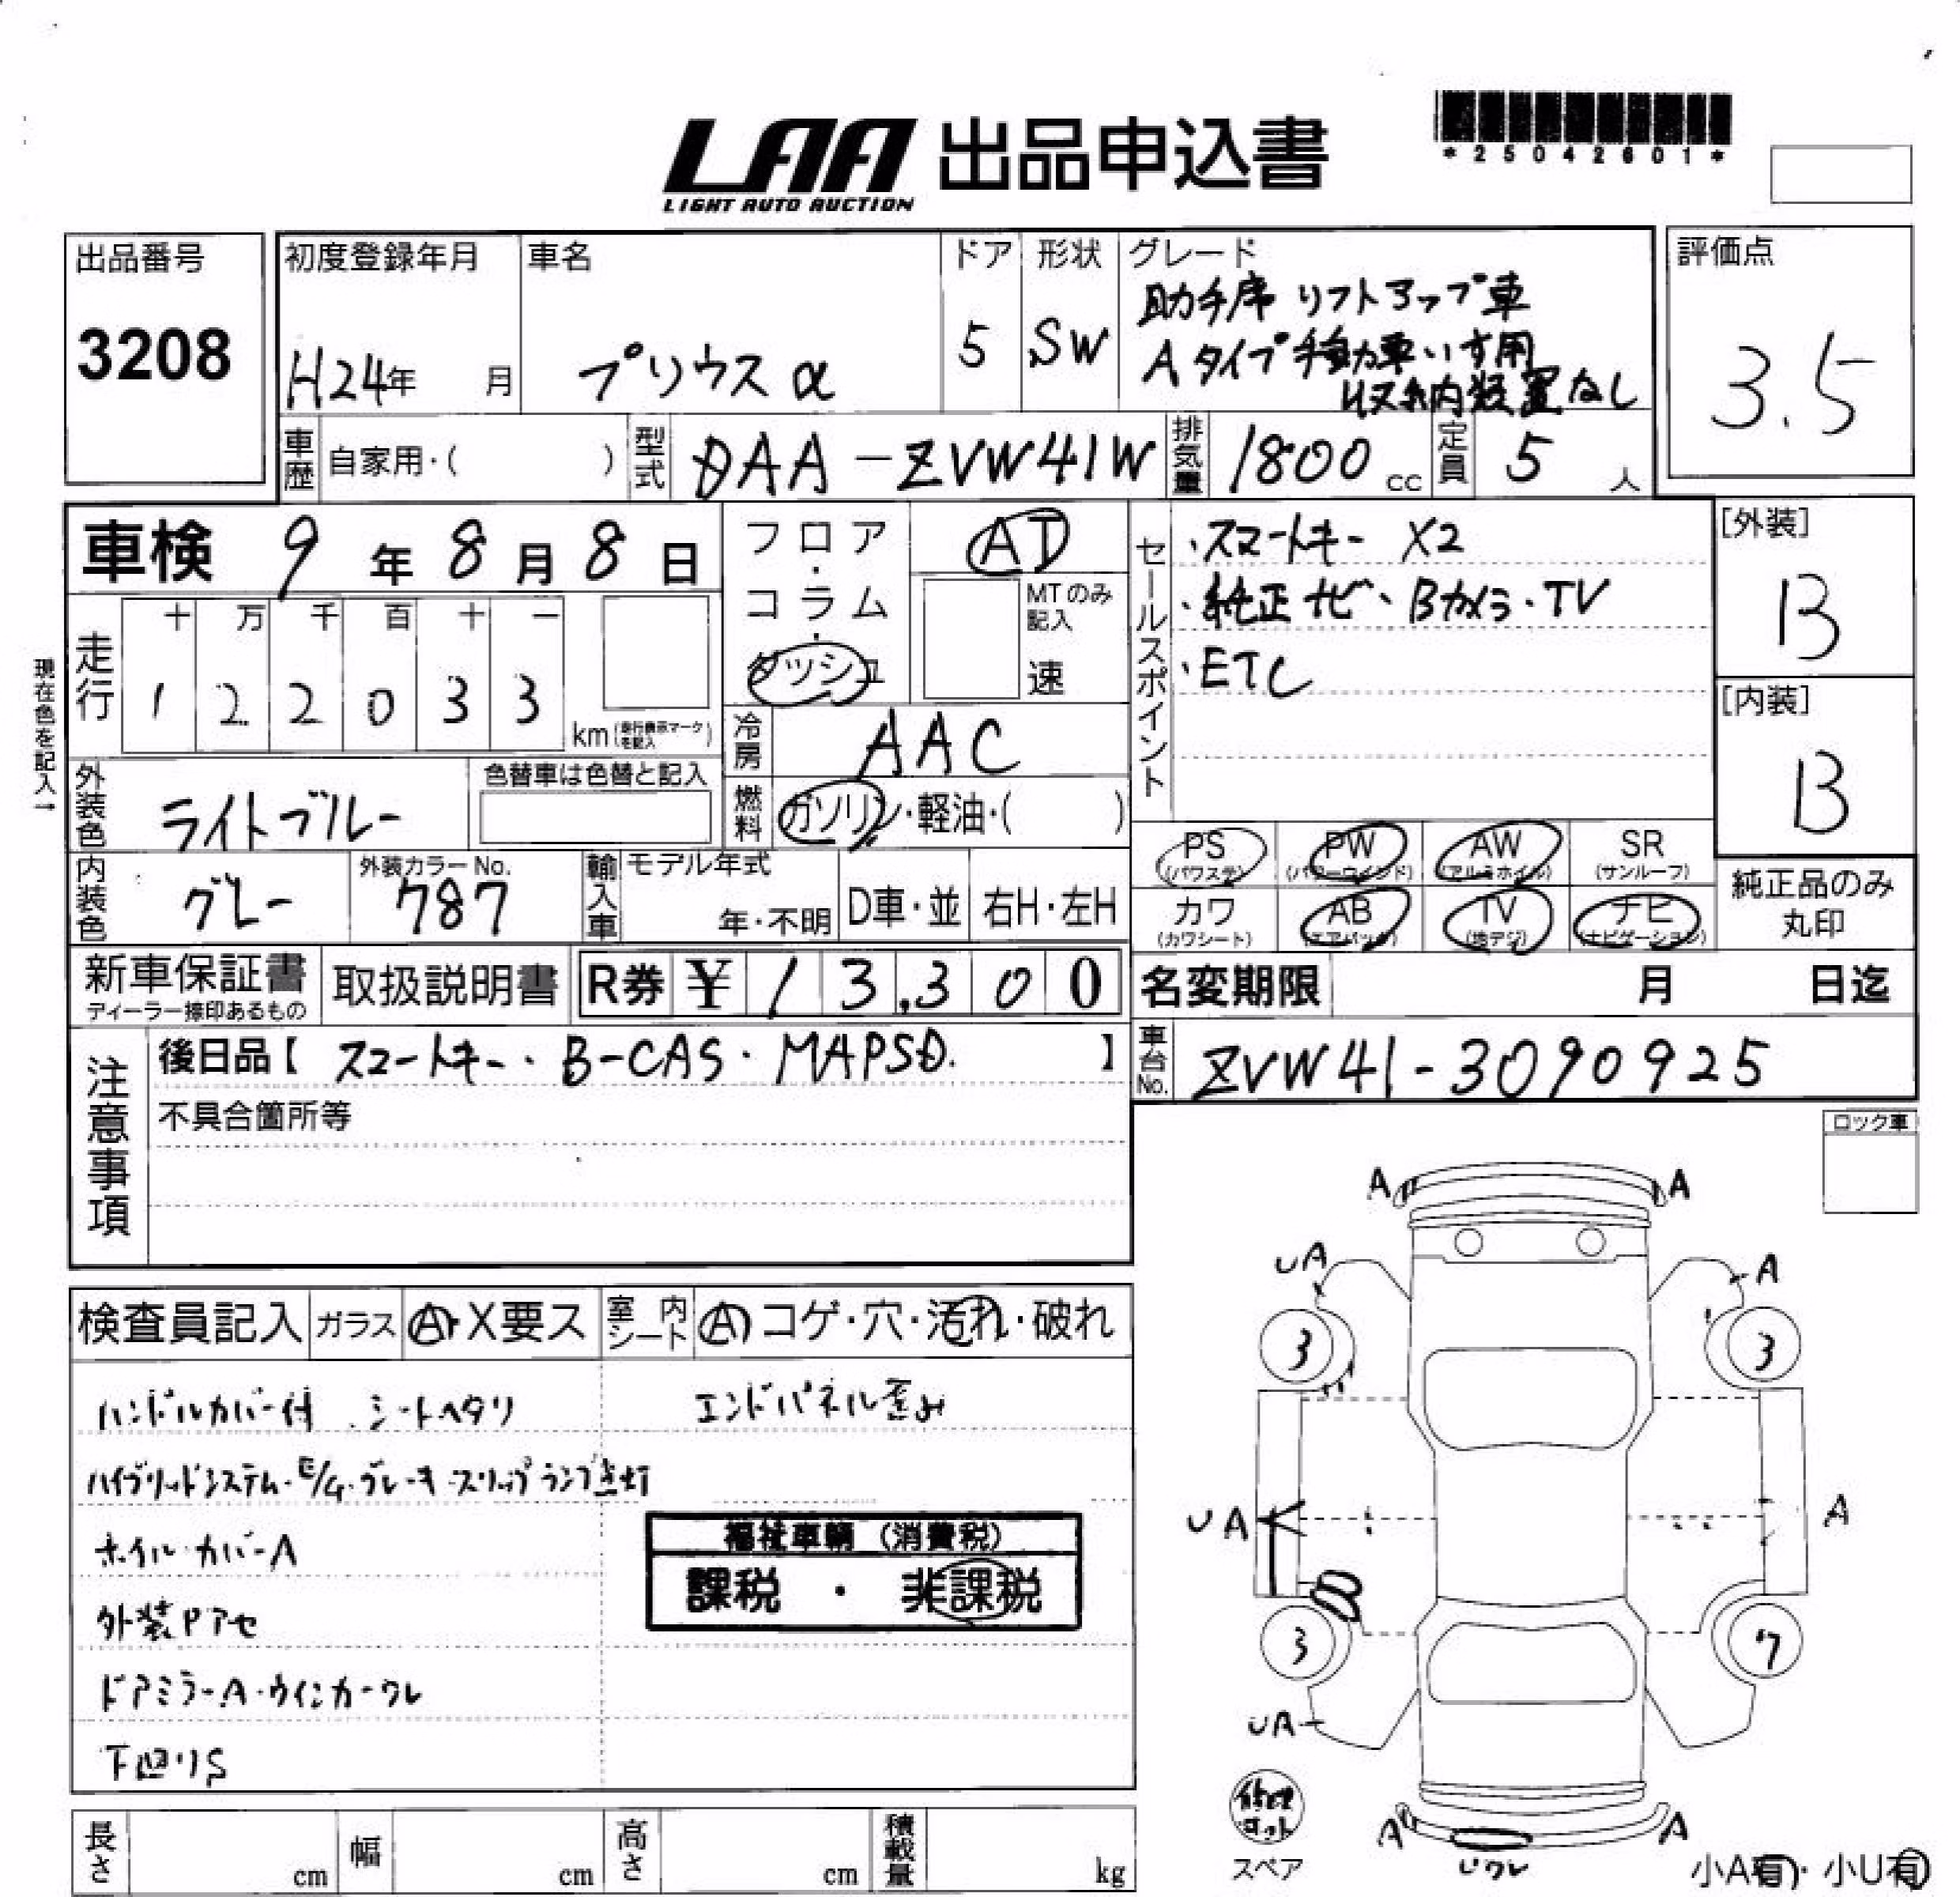 LAA 出品申込書
LIGHT AUTO AUCTION
*25042601*
出品番号
3208
初度登録年月
H24年 月
車名
プリウスα
ドア
5
形状
SW
グレード
助手席 リフトアップ車
Aタイプ 手動車いす用
収納装置なし
評価点
3.5
車歴 自家用・( )
型式 DAA-ZVW41W
排気量 1800 cc
定員 5 人
車検 9年 8月 8日
フロア・コラム・ダッシュ
AT
MTのみ記入
速
セールスポイント
・スマートキー X2
・純正ナビ・Bカメラ・TV
・ETC
[外装]
B
[内装]
B
現在色を記入→
走行
十 万 千 百 十 一
1 2 2 0 3 3
km (走行表示マークを記入)
冷房 AAC
外装色 ライトブルー
色替車は色替と記入
燃料 ガソリン・軽油・( )
PS (パワステ)
PW (パワーウインド)
AW (アルミホイル)
SR (サンルーフ)
カワ (カワシート)
AB (エアバック)
TV (地デジ)
ナビ (ナビゲーション)
純正品のみ丸印
内装色 グレー
外装カラーNo.
787
輸入車
モデル年式
年・不明
D車・並
右H・左H
新車保証書
ディーラー捺印あるもの
取扱説明書
R券 ¥13,300
名変期限 月 日迄
注意事項
後日品【 スマートキー・B-CAS・MAPSD. 】
不具合箇所等
車台No. ZVW41-3090925
ロック車
検査員記入
ガラス A・X要ス
室内シート A コゲ・穴・汚れ・破れ
ハンドルカバー付 シートヘタリ
エンドパネル歪み
ハイブリッドシステム・E/G・ブレーキ・スリップランプ点灯
ホイルカバーA
福祉車輌(消費税)
課税 ・ 非課税
外装Pアセ
ドアミラーA・ウインカーワレ
下回りS
A A
UA A
3 3
UA A
3 7
UA
A A
Uワレ
修理キット
スペア
小A有・小U有
長さ cm
幅 cm
高さ cm
積載量 kg